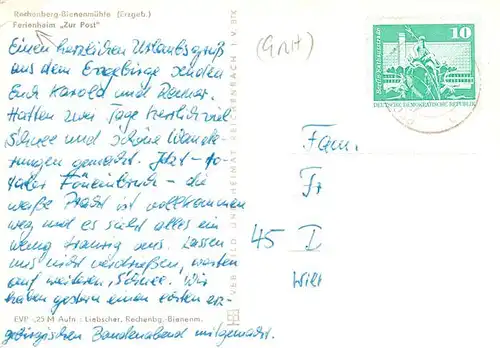 Rechenberg-Bienenmühle (Erzgeb.)
Ferienheim „Zur Post"
Einen herzlichen Urlaubsgruß
aus dem Erzgebirge senden
Euch Karola und Reiner.
Hatten zwei Tage herrlich viel
Schnee und schöne Wande-
rungen gemacht. Jetzt - to-
taler Föneinbruch - die
weiße Pracht ist vollkommen
weg und es sieht alles ein
wenig traurig aus. Lassen
uns nicht verdrießen, warten
auf weiteren Schnee. Wir
haben gestern einen echten erz-
gebirgischen Bandenabend mitgemacht.
EVP -,25 M Aufn.: Liebscher, Rechenbg.-Bienenm.
VEB BILD UND HEIMAT REICHENBACH I. V. BfK
(GNH)
10
DEUTSCHE DEMOKRATISCHE REPUBLIK
Fam.
Fr
45 I
Witt